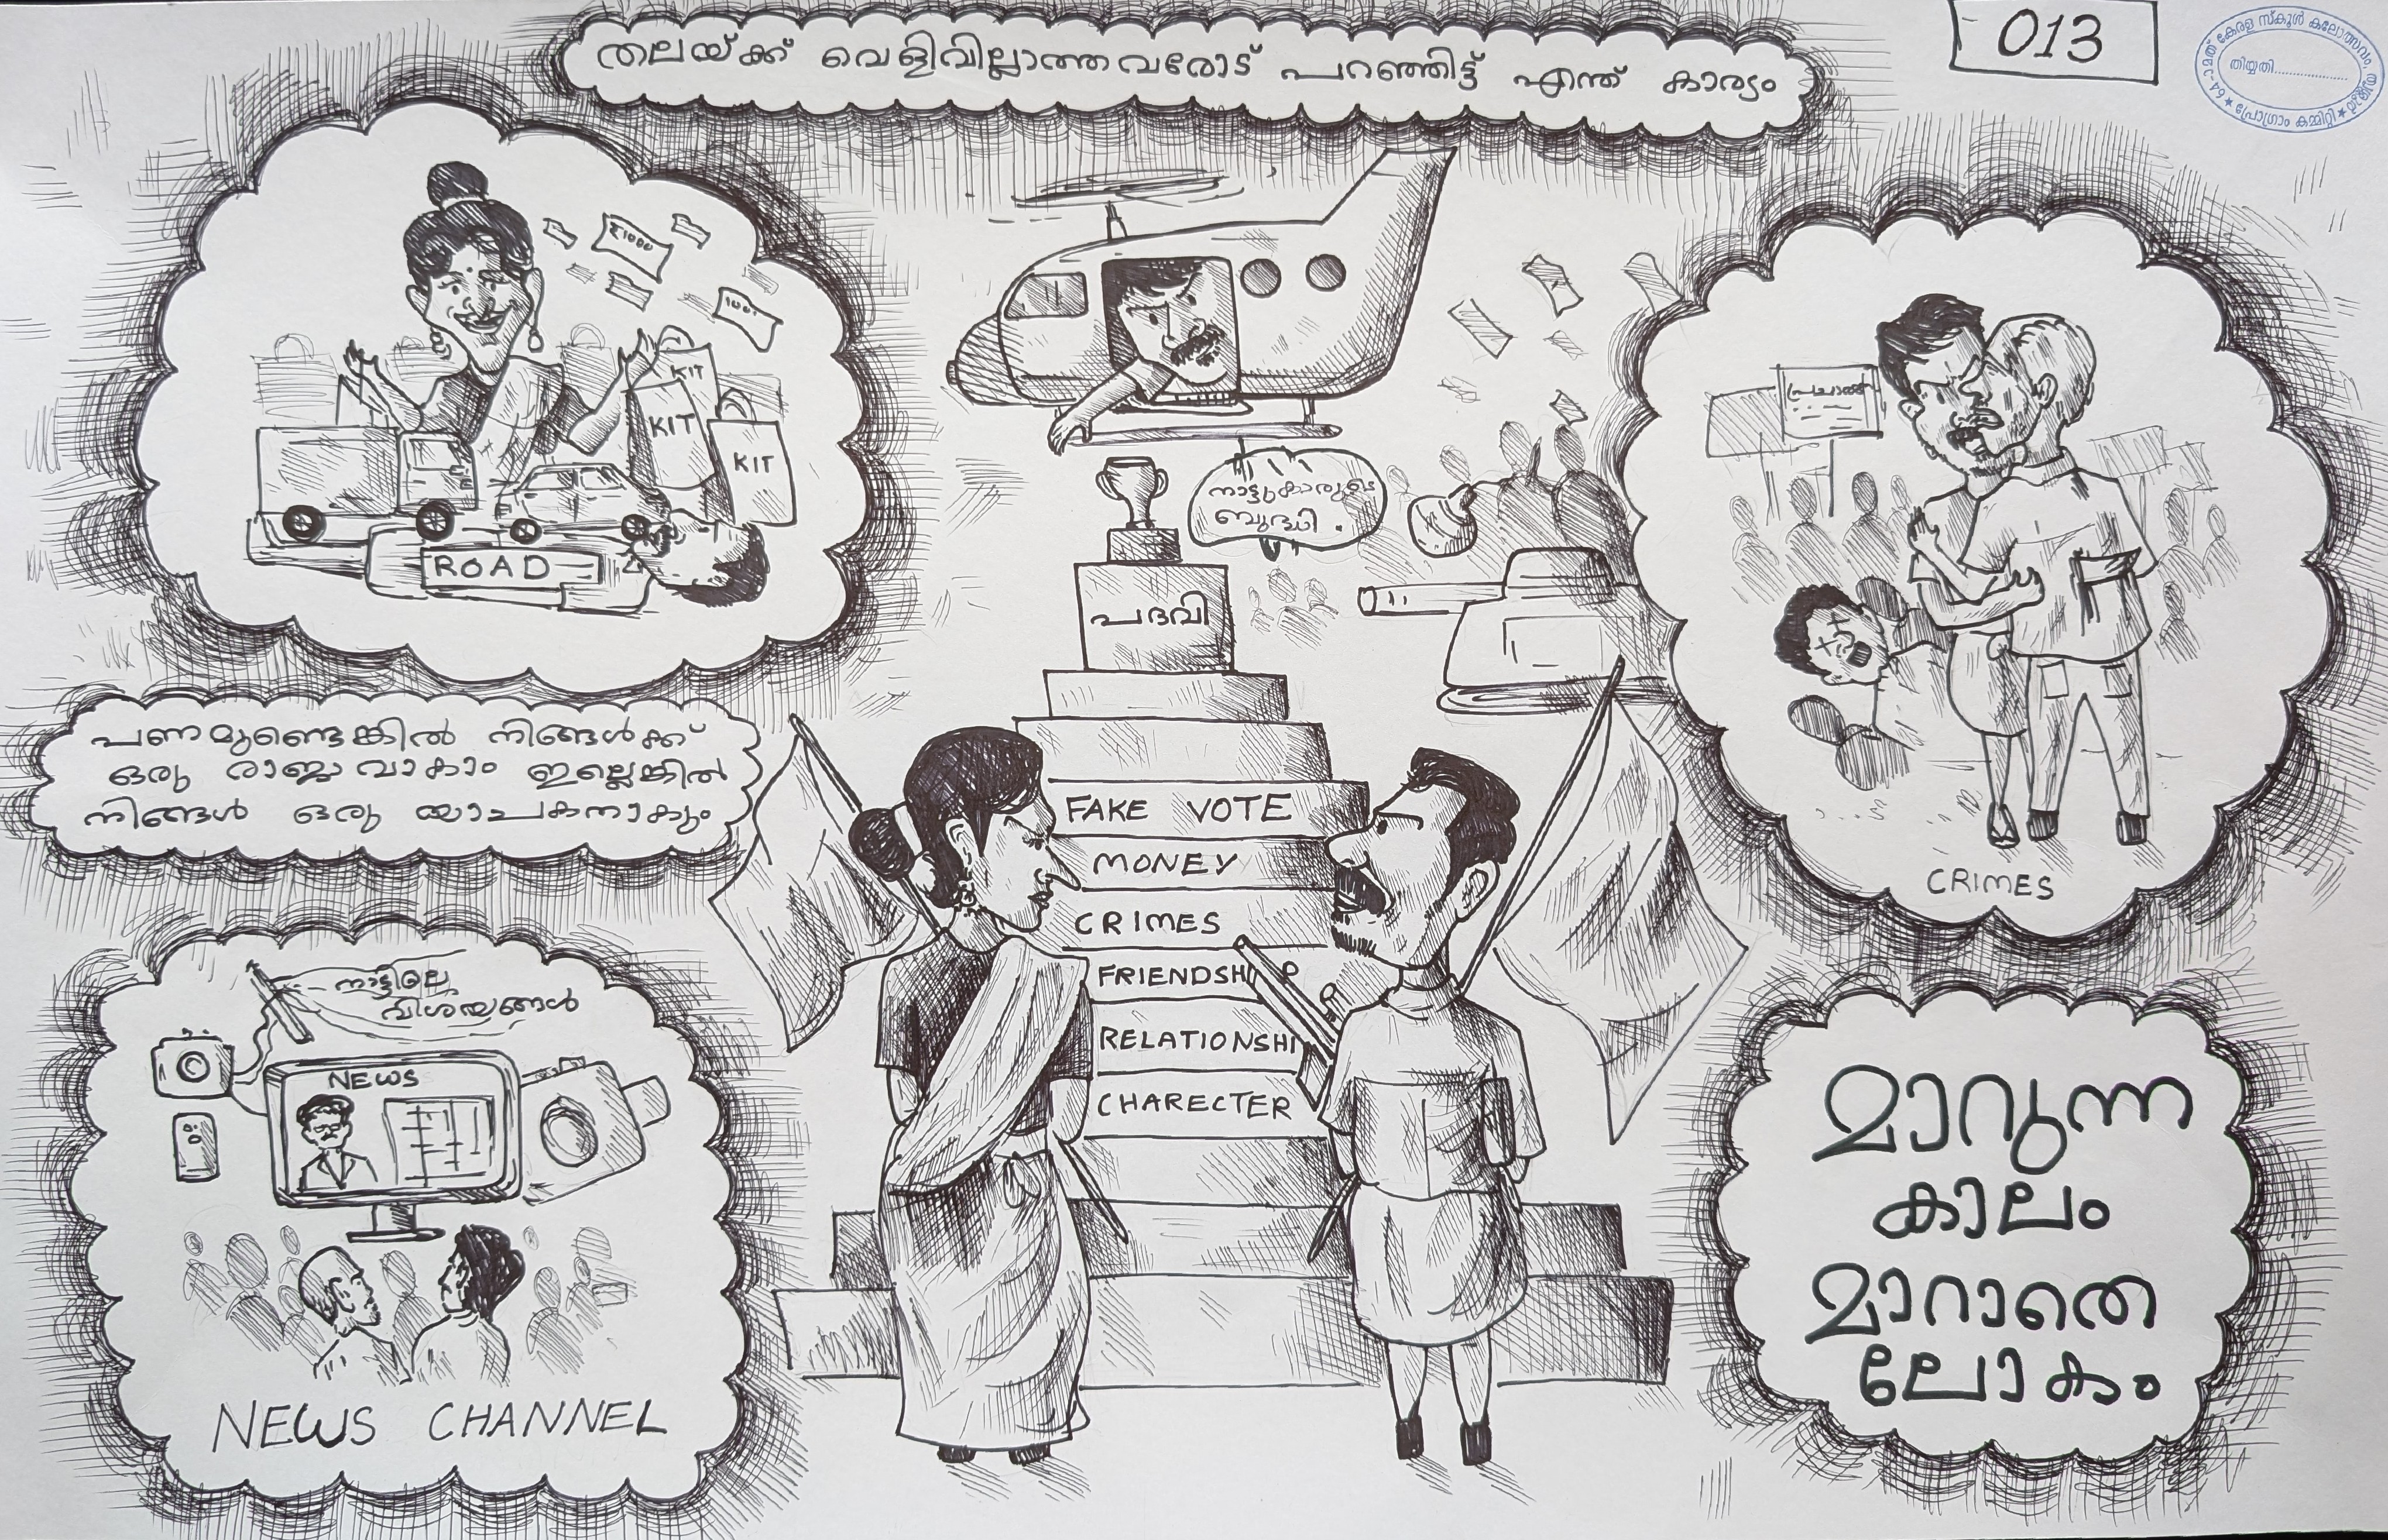 തലയ്ക്ക് വെളിവില്ലാത്തവരോട് പറഞ്ഞിട്ട് എന്ത് കാര്യം
013
64-ാമത് കേരള സ്കൂൾ കലോത്സവം, തൃശ്ശൂർ
തിയ്യതി....................
★ പ്രോഗ്രാം കമ്മിറ്റി ★
₹1000
KIT
KIT
KIT
ROAD
നാട്ടുകാരുടെ
ബുദ്ധി.
പദവി
FAKE VOTE
MONEY
CRIMES
FRIENDSHIP
RELATIONSHI
CHARECTER
CRIMES
പണമുണ്ടെങ്കിൽ നിങ്ങൾക്ക്
ഒരു രാജാവാകാം ഇല്ലെങ്കിൽ
നിങ്ങൾ ഒരു യാചകനാകും
നാട്ടിലെ
വിശയങ്ങൾ
NEWS
NEWS CHANNEL
മാറുന്ന
കാലം
മാറാതെ
ലോകം